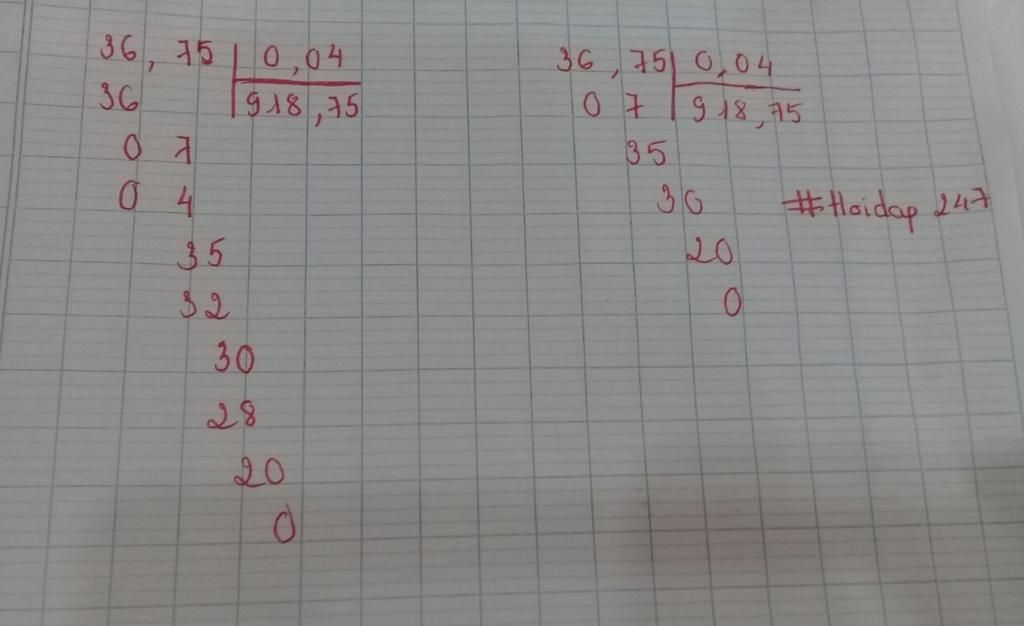 36,75 0,04
36 918,75
0 7
0 4
35
32
30
28
20
0
36,75 0,04
0 7 918,75
35
30
20
0
#Hoidap 247